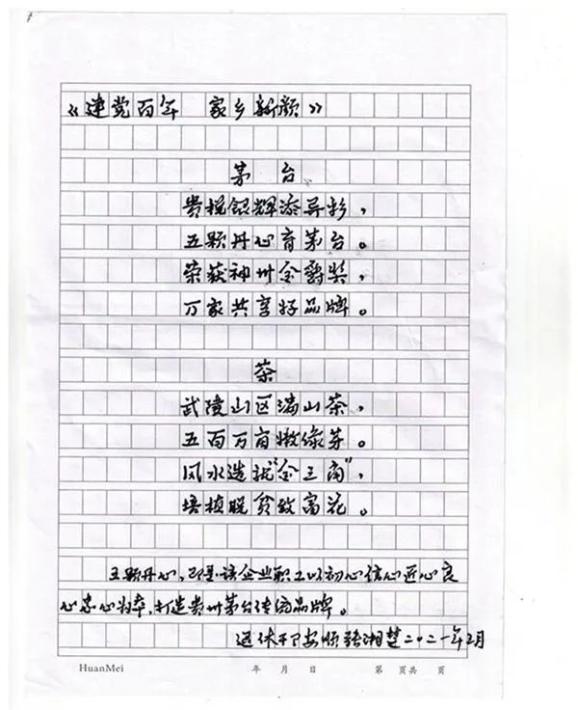 《建党百年 家乡新颜》
茅台
贵税银辉添异彩，
五颗丹心育茅台。
荣获神州金爵奖，
万家共享好品牌。
茶
武陵山区满山茶，
五百万亩嫩绿芽。
风水造就"金三角"，
培植脱贫致富花。
五颗丹心，即是该企业职工以初心信心匠心良
心忠心为本，打造贵州茅台传统品牌。
退休干部 安顺 骆湘楚二〇二一年三月
HuanMei 年 月 日 第 页共 页